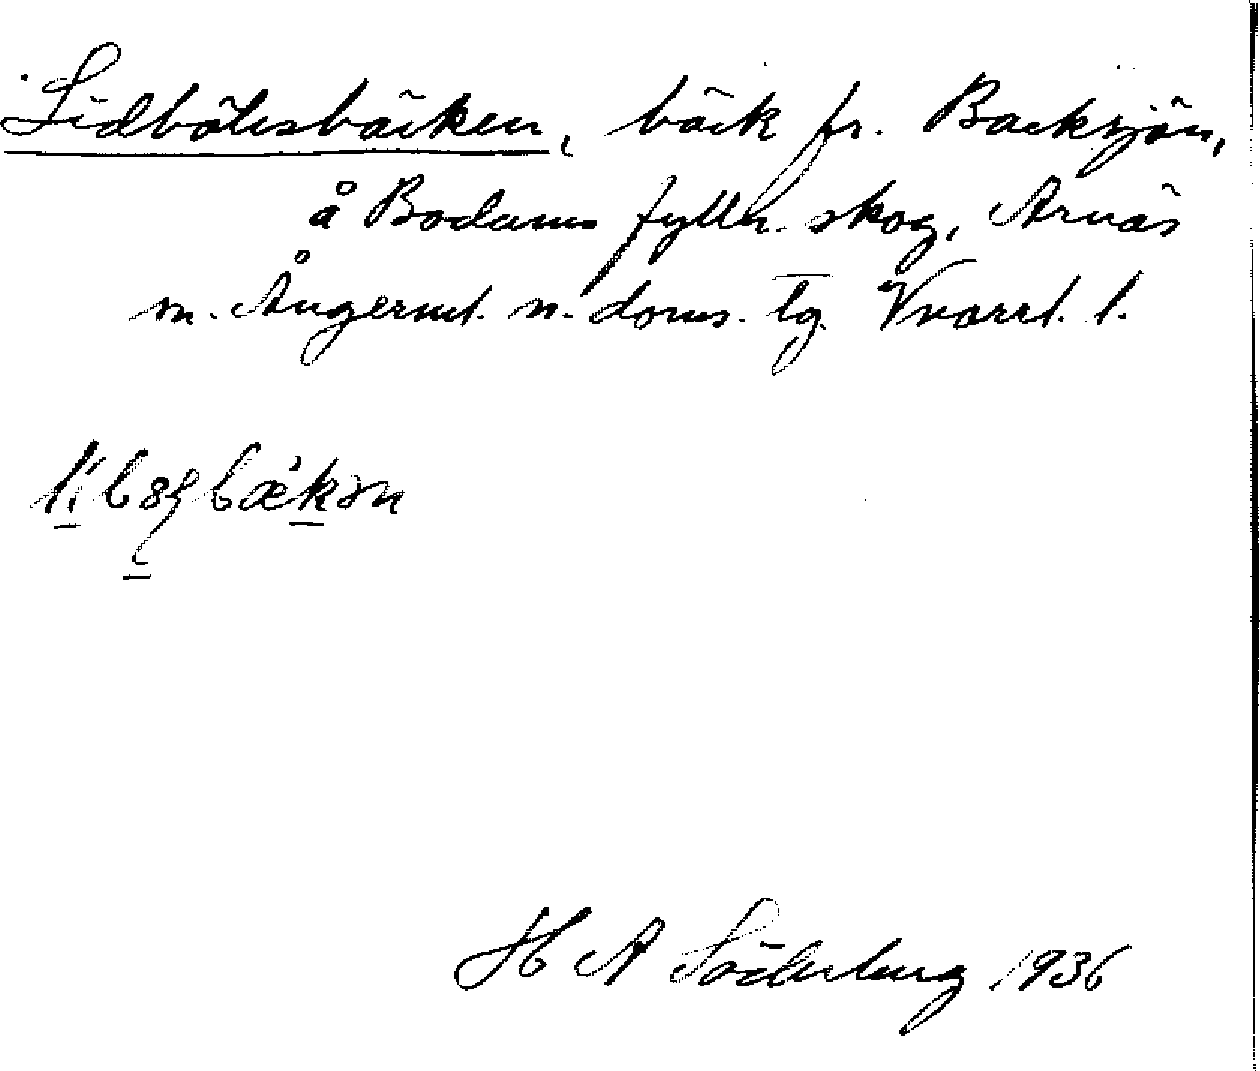 Lidbölesbäcken, bäck fr. Backsjön,
å Bodums fylln. skog, Arnäs
m. Ångerml. n. doms. lg. Vnorrl. l.
H A Söderberg 1936